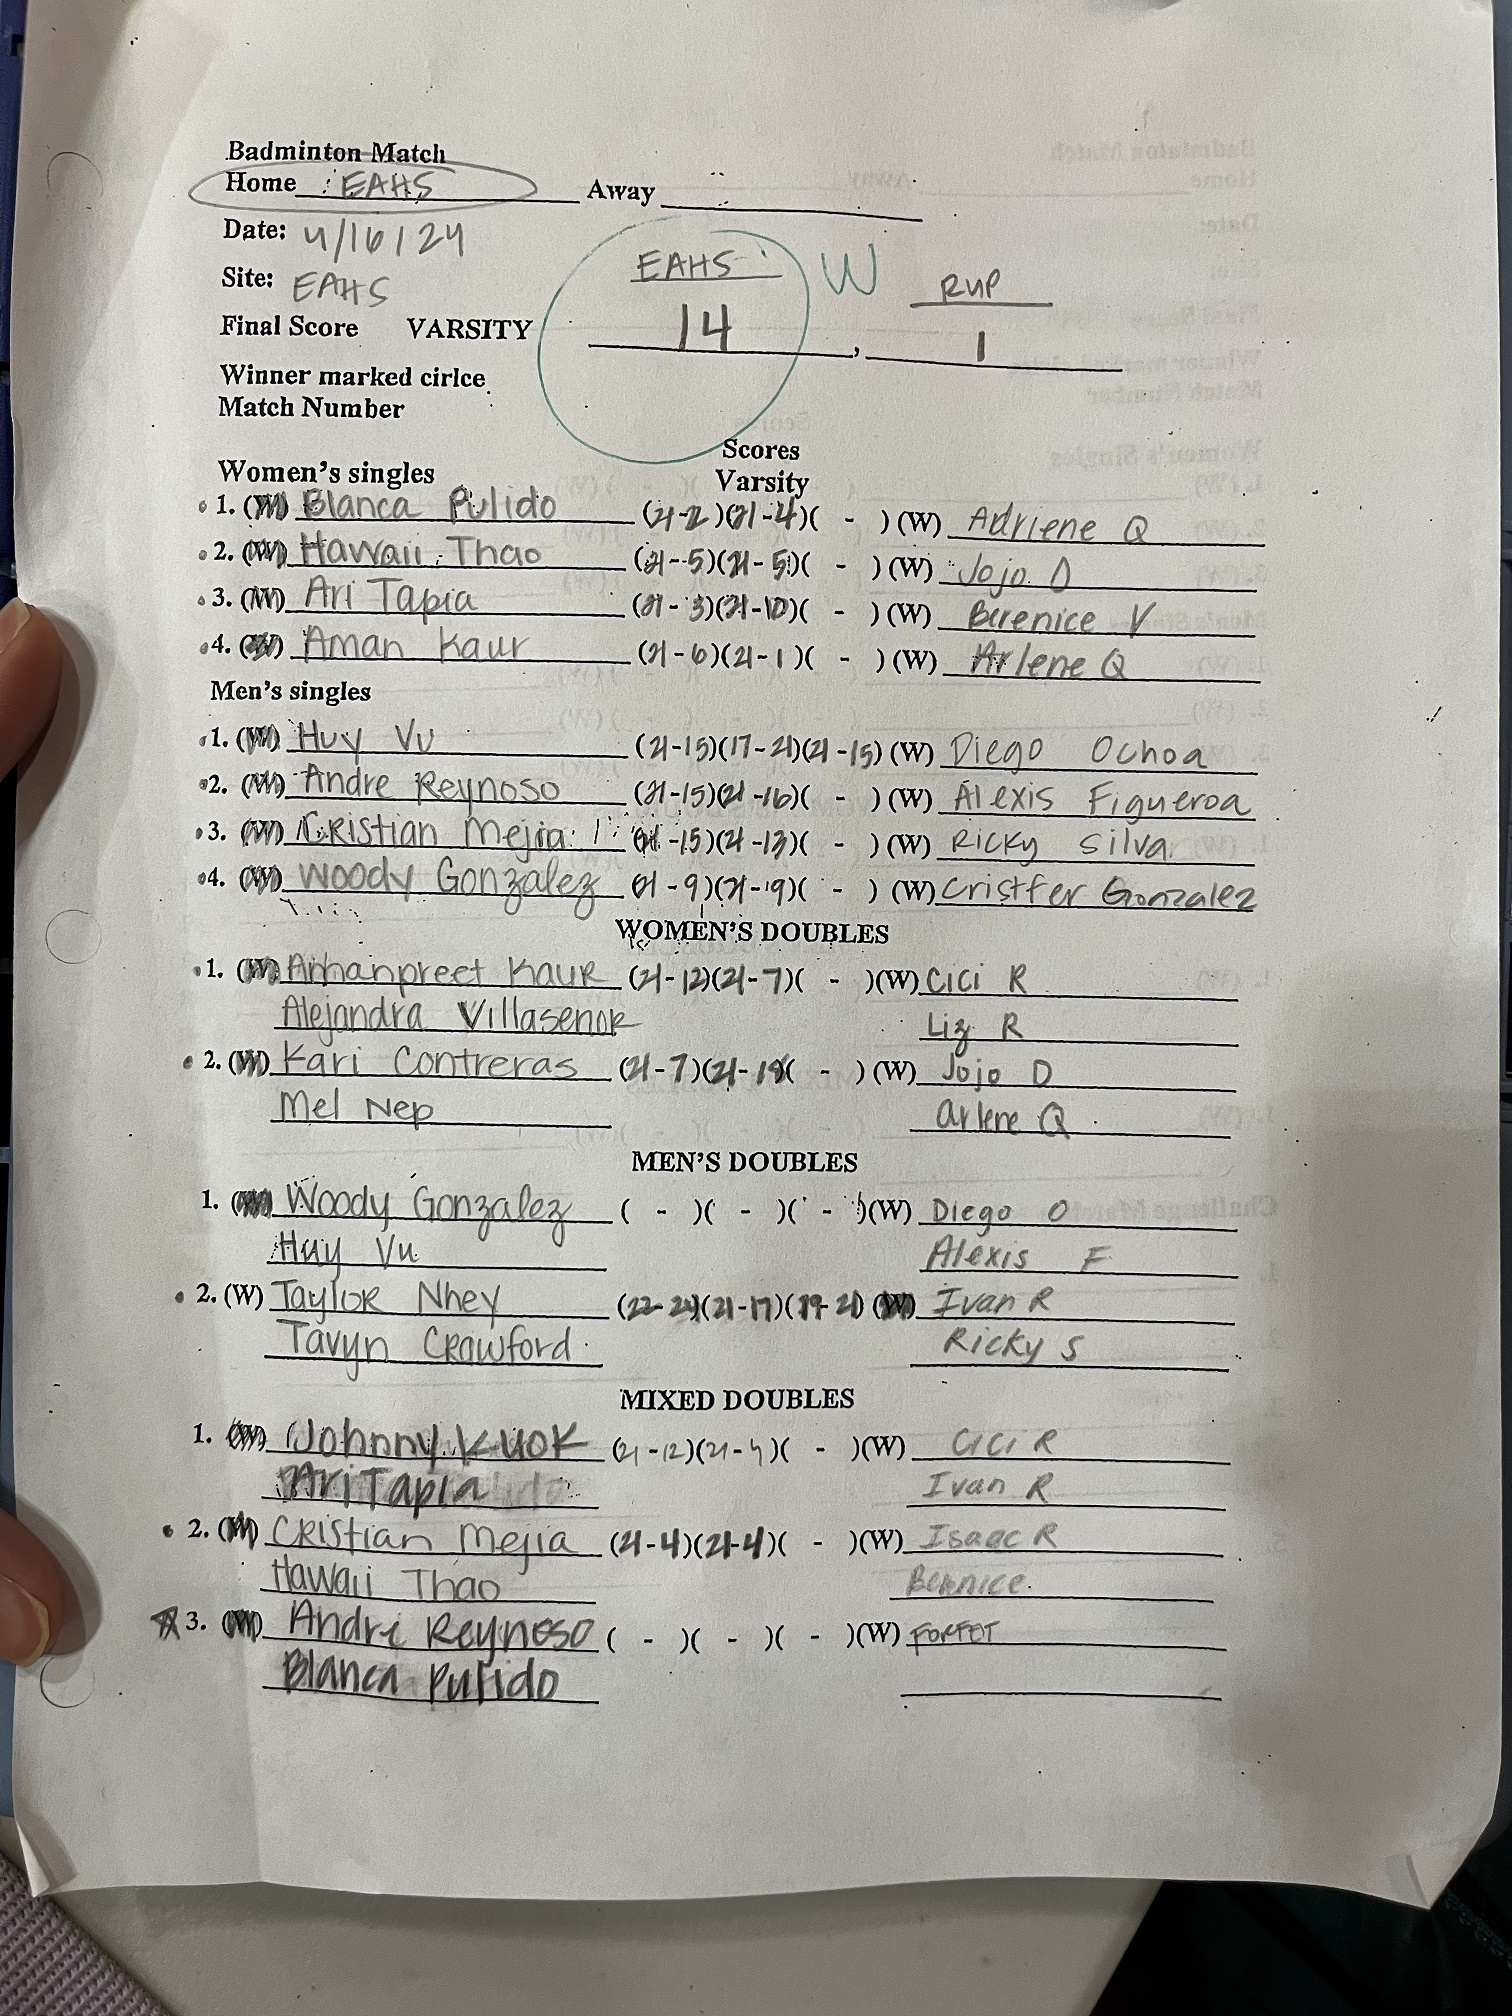 Badminton Match
Home EAHS Away
Date: 4/16/24
Site: EAHS
EAHS W RUP
Final Score VARSITY 14 , 1
Winner marked cirlce
Match Number
Scores
Women's singles Varsity
1. (W) Blanca Pulido (21-2)(21-4)( - ) (W) Adriene Q
2. (W) Hawaii Thao (21-5)(21-5)( - ) (W) Jojo D
3. (W) Ari Tapia (21-3)(21-10)( - ) (W) Berenice V
4. (W) Aman Kaur (21-6)(21-1)( - ) (W) Arlene Q
Men's singles
1. (W) Huy Vu (21-15)(17-21)(21-15) (W) Diego Ochoa
2. (W) Andre Reynoso (21-15)(21-16)( - ) (W) Alexis Figueroa
3. (W) Cristian Mejia (21-15)(21-13)( - ) (W) Ricky Silva
4. (W) Woody Gonzalez (21-9)(21-9)( - ) (W) Cristfer Gonzalez
WOMEN'S DOUBLES
1. (W) Amanpreet Kaur (21-12)(21-7)( - )(W) CiCi R
Alejandra Villasenor Liz R
2. (W) Kari Contreras (21-7)(21-18)( - ) (W) Jojo D
Mel Nep Arlene Q
MEN'S DOUBLES
1. (W) Woody Gonzalez ( - )( - )( - )(W) Diego O
Huy Vu Alexis F
2. (W) Taylor Nhey (22-24)(21-17)(19-21) (W) Ivan R
Tavyn Crawford Ricky S
MIXED DOUBLES
1. (W) Johnny Kuok (21-12)(21-4)( - )(W) CiCi R
Ari Tapia Ivan R
2. (W) Cristian Mejia (21-4)(21-4)( - )(W) Isaac R
Hawaii Thao Bernice
3. (W) Andre Reynoso ( - )( - )( - )(W) FORFET
Blanca Pulido